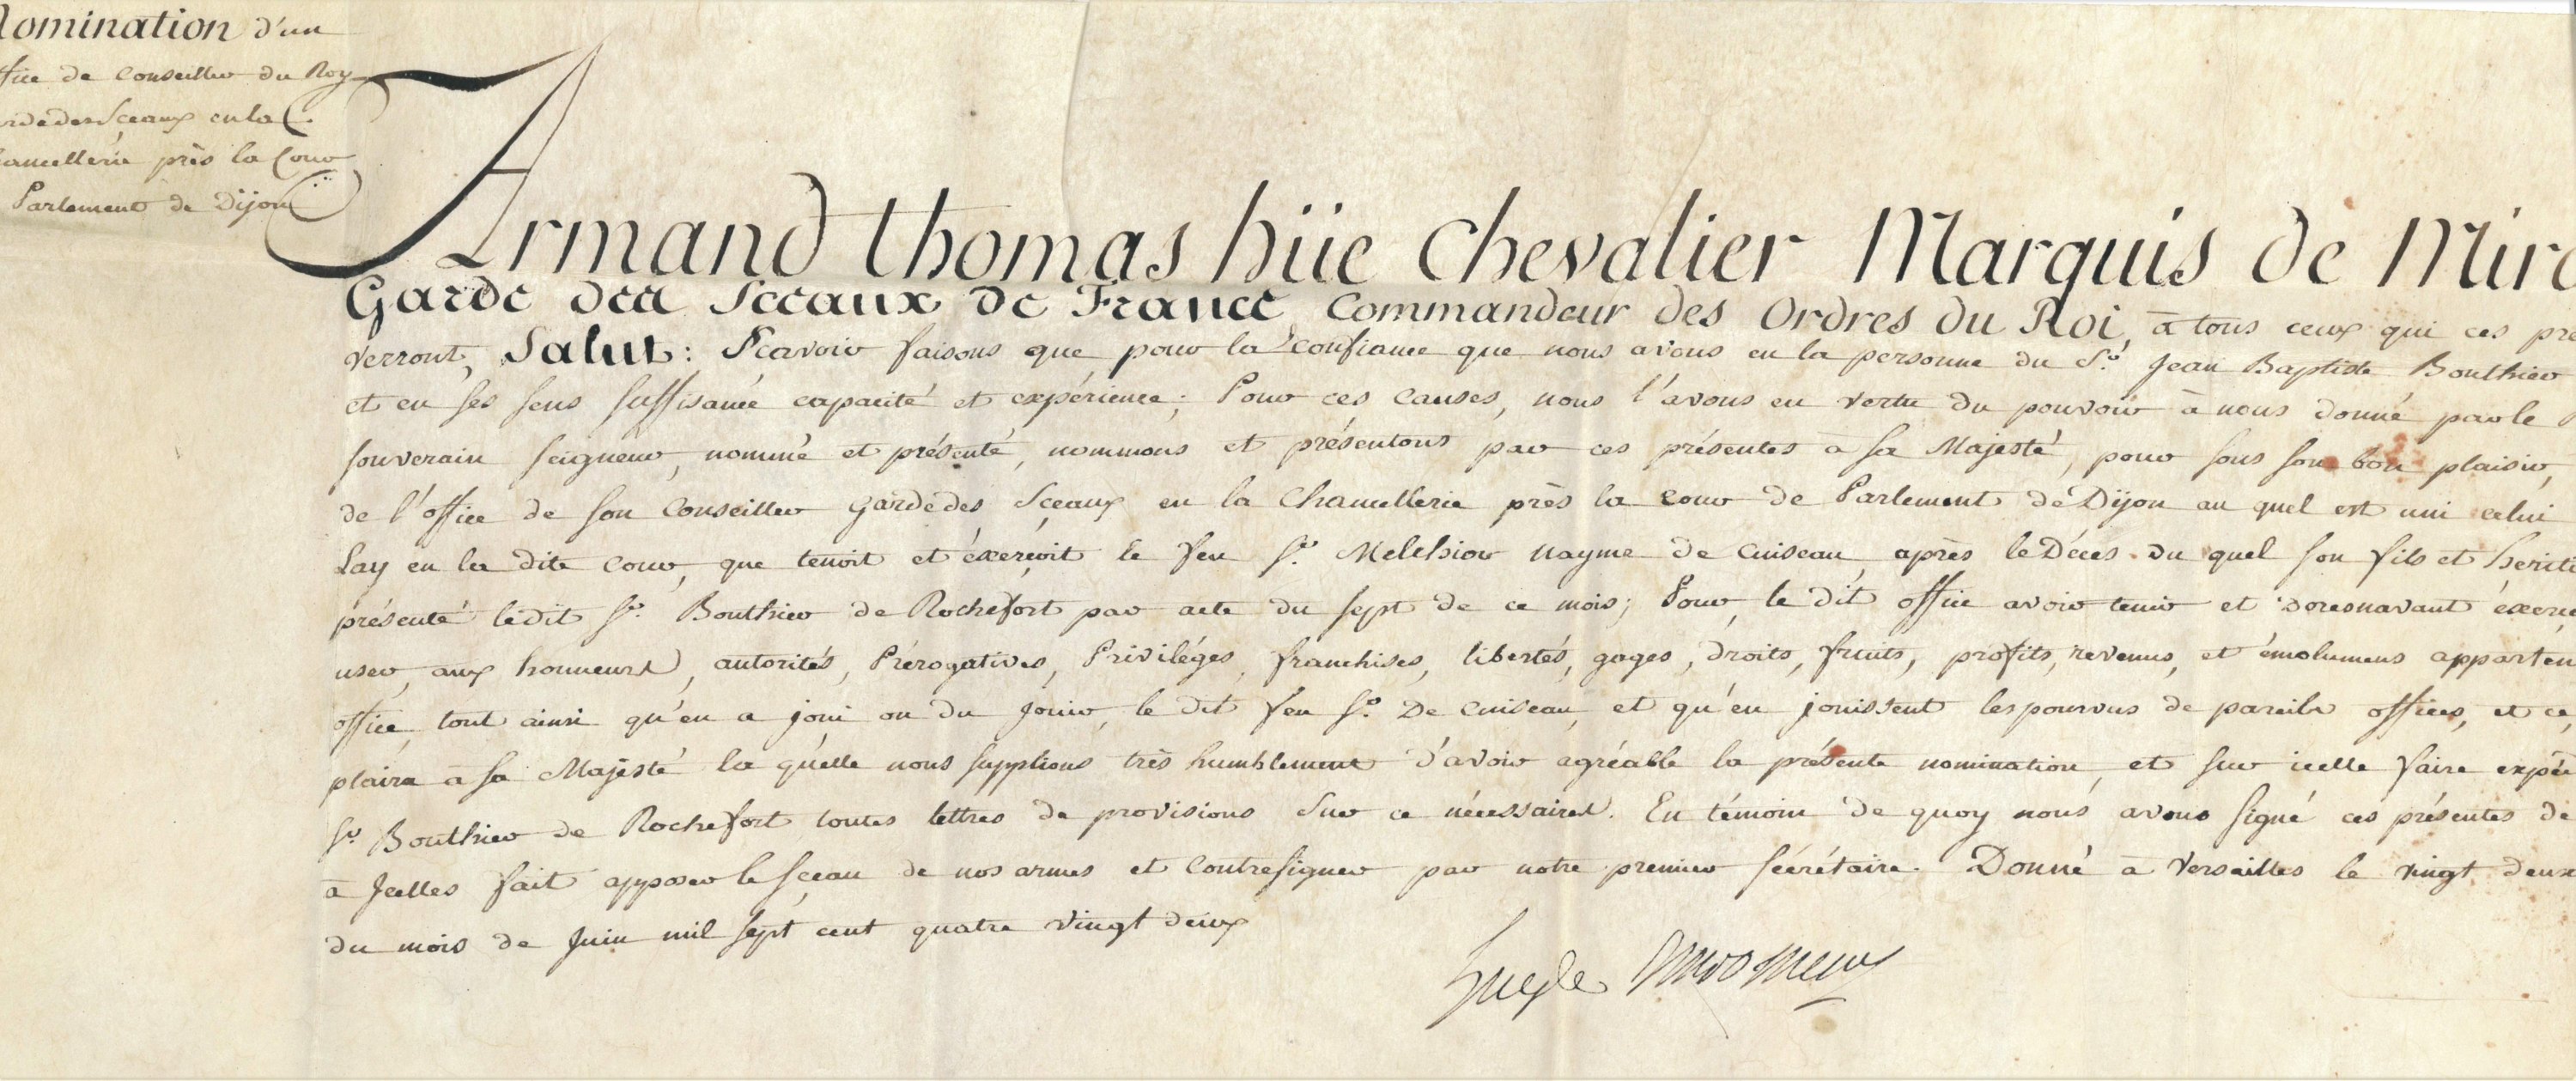 Nomination d'un
ffice de Conseiller du Roy
arde des Sceaux en la
hancellerie près la Cour
Parlement de Dijon
Armand thomas hüe Chevalier Marquis de Miro
Garde des Sceaux de France Commandeur des Ordres du Roi, à tous ceux qui ces pré
verront, Salut: Sçavoir faisons que pour la confiance que nous avons en la personne du Sr. Jean Baptiste Bouthier
et en ses sens suffisance capacité et expérience; Pour ces causes, nous l'avons en vertu du pouvoir à nous donné par le
souverain seigneur, nommé et présenté, nommons et présentons par ces présentes à Sa Majesté, pour sous son bon plaisir,
de l'office de son Conseiller Garde des Sceaux en la Chancellerie près la cour de Parlement de Dijon au quel est uni celui
Lay en la dite Cour, que tenoit et éxerçoit le feu Sr. Melchior nayme de Cuiseau, après le Décès du quel son fils et heriti
présenté ledit Sr. Bouthier de Rochefort par acte du sept de ce mois; Pour, le dit office avoir tenir et doresnavant éxerce
user, aux honneurs, autorités, Prérogatives, Priviléges, franchises, libertés, gages, droits, fruits, profits, revenus, et émolumens apparten
office, tout ainsi qu'en a joui ou du jouir, le dit feu Sr. De Cuiseau, et qu'en jouissent les pourvus de pareils offices, et ce,
plaira à Sa Majesté la qu'elle nous supplions très humblement d'avoir agréable la présente nomination, et sur icelle faire expéd
Sr. Bouthier de Rochefort toutes lettres de provisions sur ce nécessaires. En témoin de quoy nous avons signé ces présentes de
à Jcelles fait apposer le sceau de nos armes et Contresigner par notre premier sécrétaire. Donné à Versailles le vingt deux
du mois de Juin mil sept cent quatre vingt deux